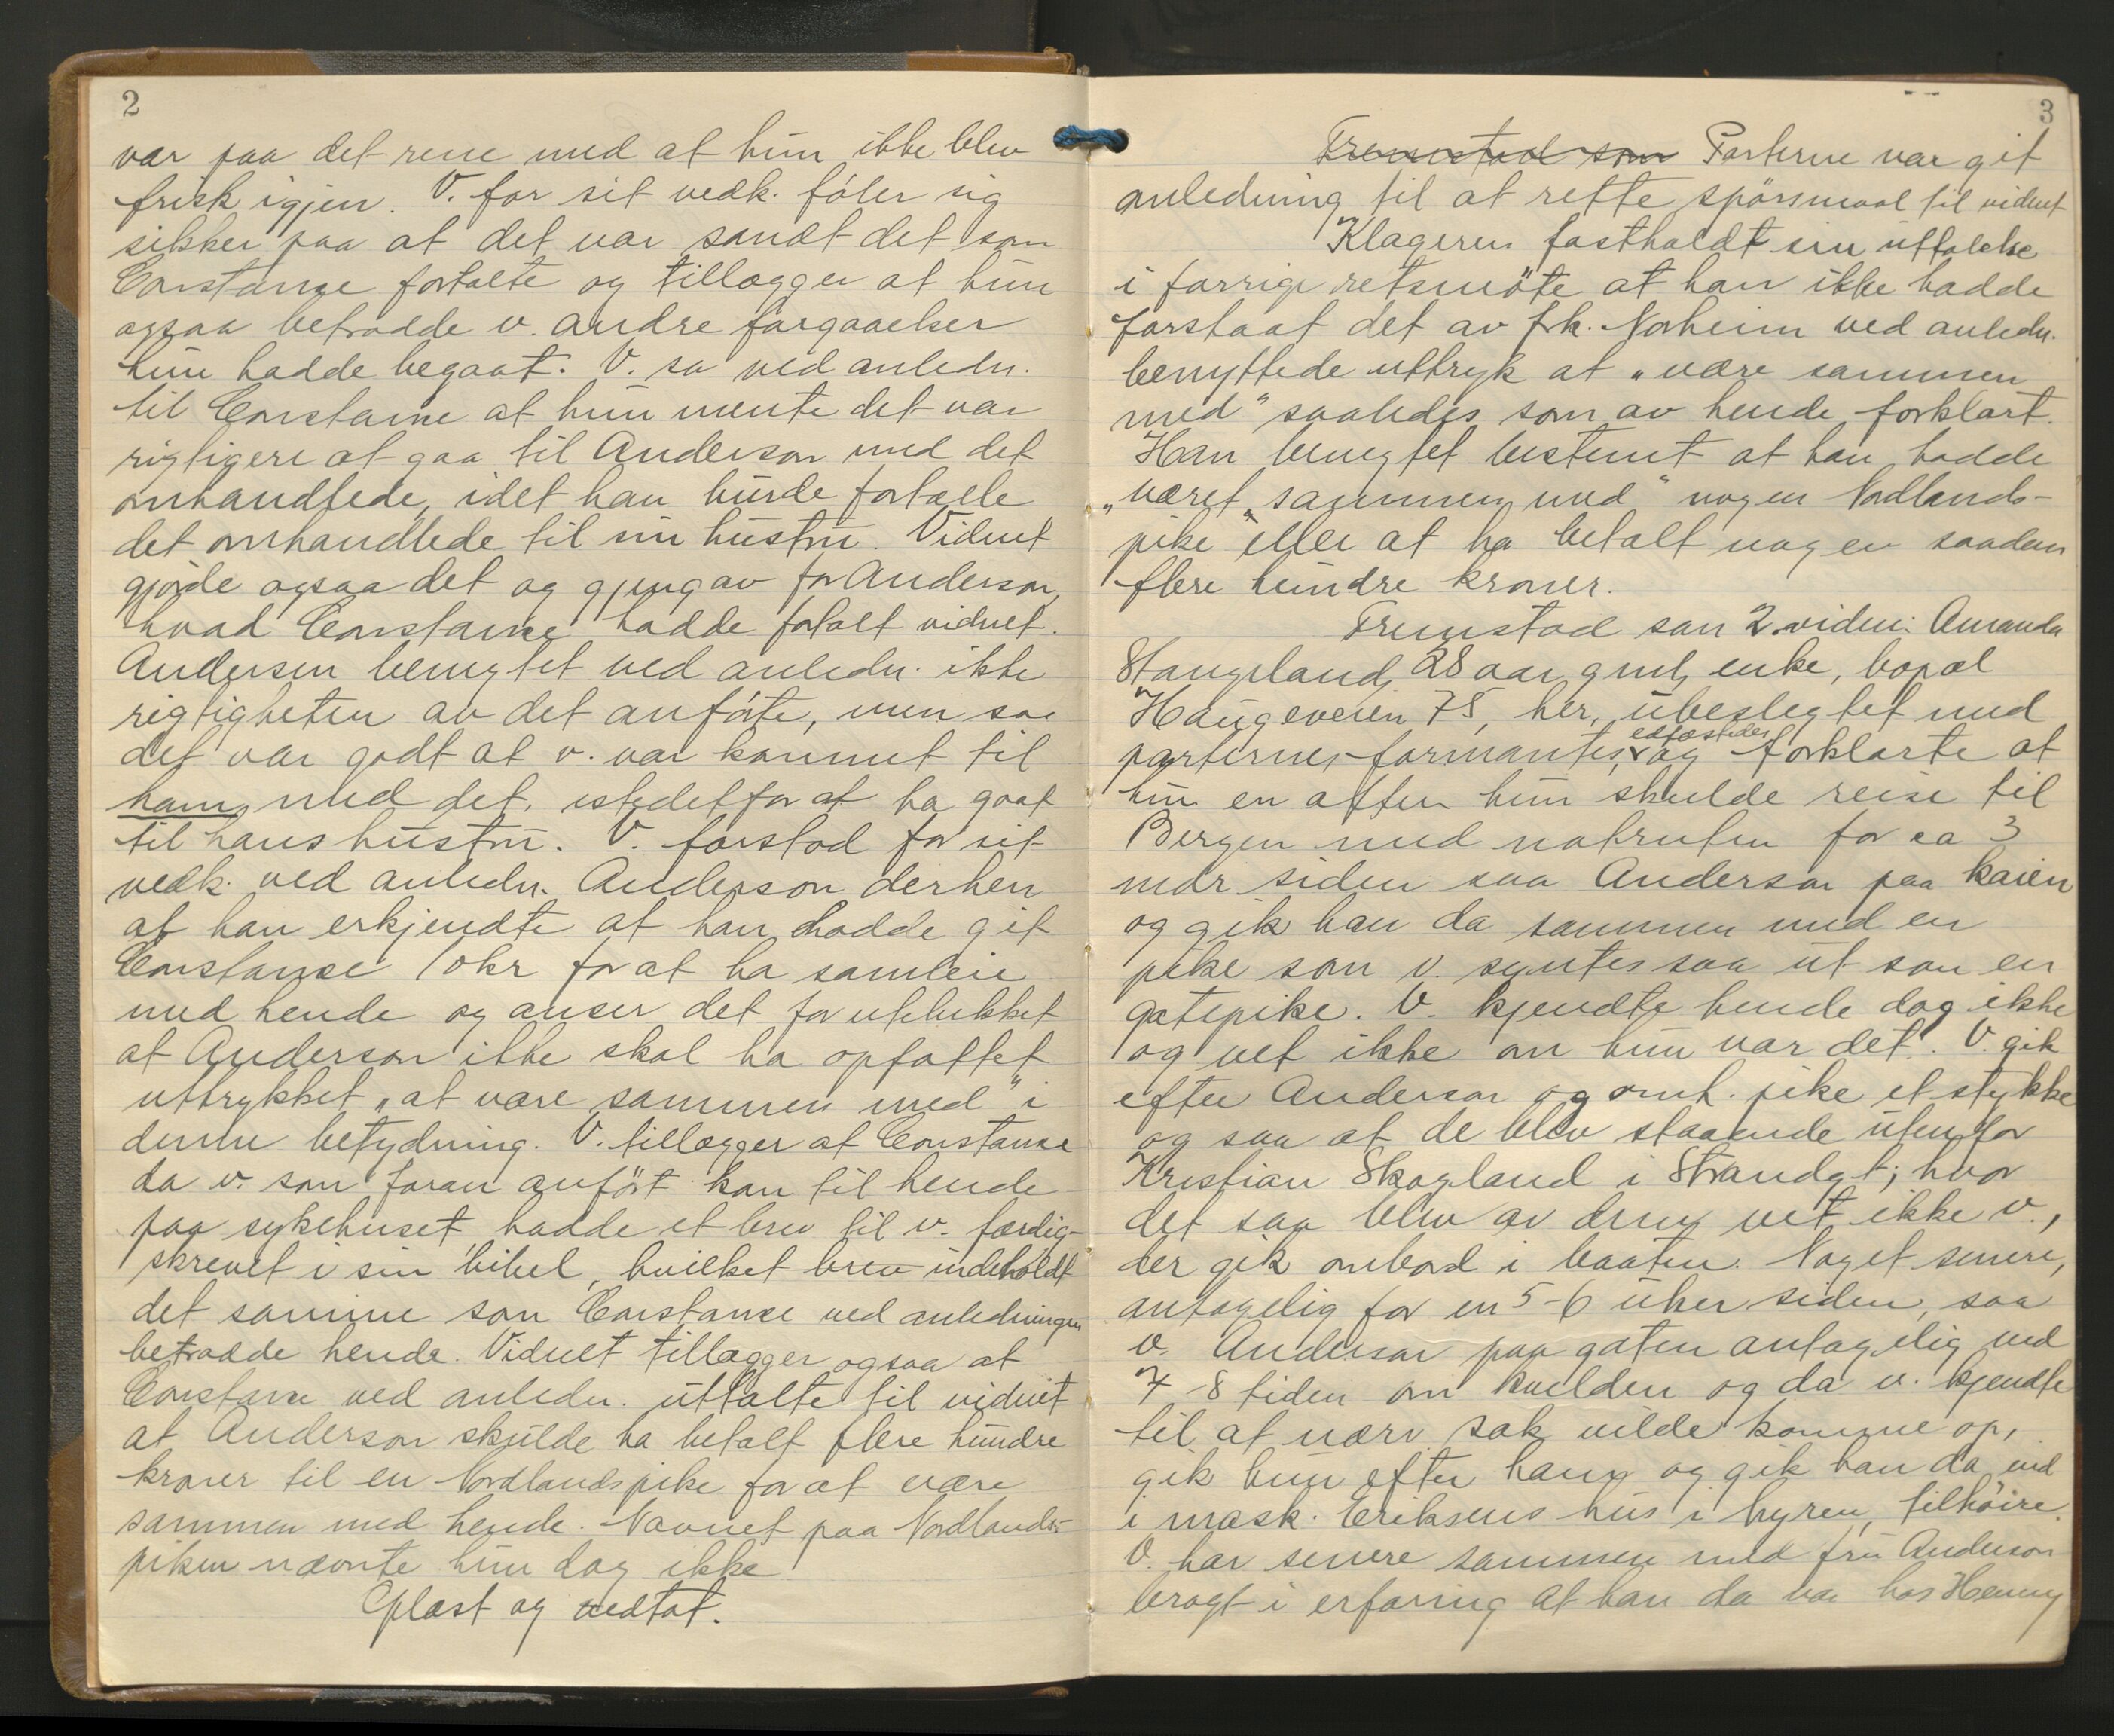 2
var paa det rene med at hun ikke blev
frisk igjen. V. for sit vedk. føler sig
sikker paa at det var sandt det som
Constance fortalte og tillægger at hun
ogsaa betrodde v. andre forgaaelser
hun hadde begaat. V. sa ved anledn.
til Constance at hun mente det var
rigtigere at gaa til Anderson med det
omhandlede, idet han burde fortælle
det omhandlede til sin hustru. Vidnet
gjorde ogsaa det og gjengav for Anderson,
hvad Constance hadde fortalt vidnet.
Anderson benegtet ved anledn. ikke
rigtigheten av det anførte, men sa
det var godt at v. var kommet til
ham med det, istedetfor at ha gaat
til hans hustru. V. forstod for sit
vedk. ved anledn. Anderson derhen
at han erkjendte at han hadde git
Constance 10 kr for at ha samleie
med hende og anser det for utelukket
at Anderson ikke skal ha opfattet
uttrykket „at være sammen med" i
denne betydning. V. tillægger at Constance
da v. som foran anført kom til hende
paa sykehuset hadde et brev til v. færdig-
skrevet i sin bibel, hvilket brev indeholdt
det samme som Constance ved anledningen
betrodde hende. Vidnet tillægger ogsaa at
Constance ved anledn. uttalte til vidnet
at Anderson skulde ha betalt flere hundre
kroner til en Nordlandspike for at være
sammen med hende. Navnet paa Nordlands-
piken nævnte hun dog ikke
Oplæst og vedtat.
3
Fremstod som Parterne var git
anledning til at rette spörsmaal til vidnet
Klageren fastholdt sin uttalelse
i forrige retsmöte at han ikke hadde
forstaat det av frk. Norheim ved anledn.
benyttede uttryk at „være sammen
med" saaledes som av hende forklart.
Han benegtet bestemt at han hadde
„været sammen med" nogen Nordlands-
pike eller at ha betalt nogen saadan
flere hundre kroner.
Fremstod som 2. vidne: Amanda
Stangeland, 28 aar gml, enke, bopæl
Haugeveien 75, her, ubeslegtet med
parterne, formantes, edfæstedes og forklarte at
hun en aften hun skulde reise til
Bergen med natruten for ca 3
mdr siden saa Anderson paa kaien
og gik han da sammen med en
pike som v. syntes saa ut som en
gatepike. V. kjendte hende dog ikke
og vet ikke om hun var det. V. gik
efter Anderson og omh. pike et stykke
og saa at de blev staaende utenfor
Kristian Skogland i Strandgt; hvor
det saa blev av dem vet ikke v.,
der gik ombord i baaten. Noget senere,
antagelig for en 5-6 uker siden, saa
v. Anderson paa gaten antagelig ved
7-8 tiden om kvelden og da v. kjendte
til at nærv. sak vilde komme op,
gik hun efter ham og gik han da ind
i mask. Eriksens hus i byren, tilhöire.
V. har senere sammen med fru Anderson
bragt i erfaring at han da var hos Henny